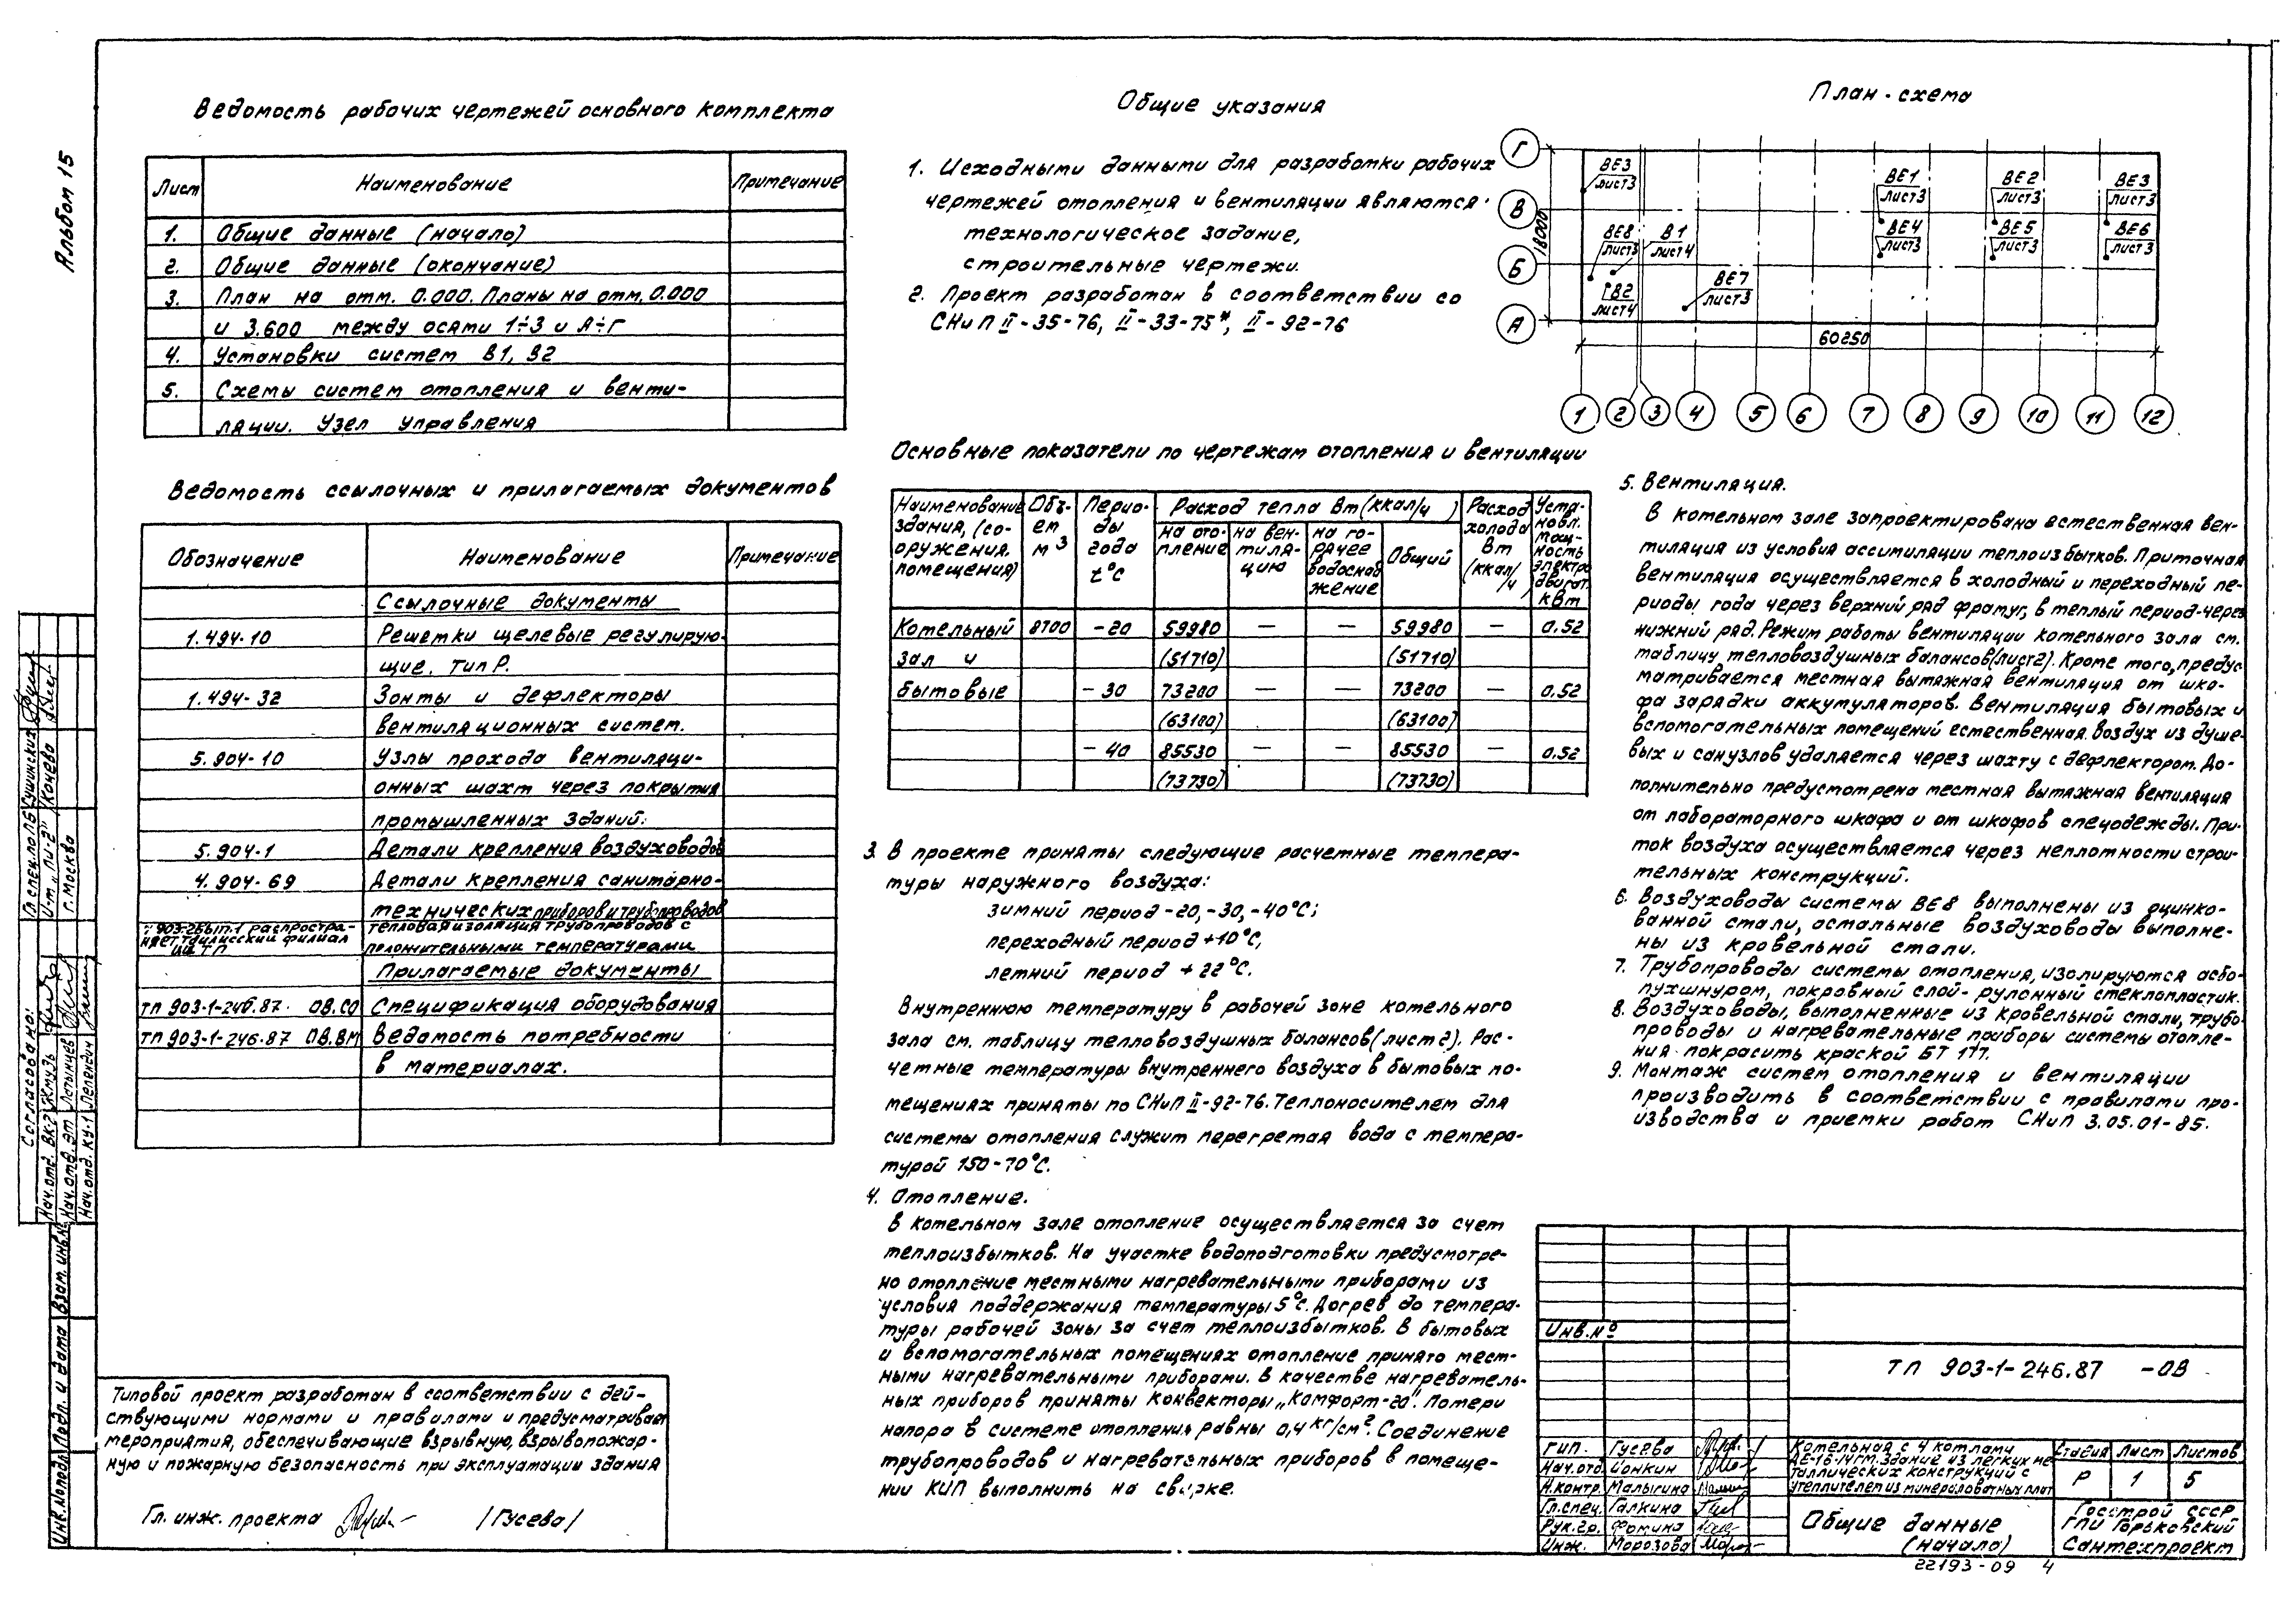 Альбом 15
Ведомость рабочих чертежей основного комплекта
Лист Наименование Примечание
1. Общие данные (начало)
2. Общие данные (окончание)
3. План на отм. 0.000. Планы на отм. 0.000
и 3.600 между осями 1÷3 и А÷Г
4. Установки систем В1, В2
5. Схемы систем отопления и венти-
ляции. Узел управления
Ведомость ссылочных и прилагаемых документов
Обозначение Наименование Примечание
Ссылочные документы
1.494-10 Решетки щелевые регулирую-
щие. Тип Р.
1.494-32 Зонты и дефлекторы
вентиляционных систем.
5.904-10 Узлы прохода вентиляци-
онных шахт через покрытия
промышленных зданий.
5.904-1 Детали крепления воздуховодов
4.904-69 Детали крепления санитарно-
технических приборов и трубопроводов
распростра- тепловая изоляция трубопроводов с
няет Тбилисский филиал
ЦИТП положительными температурами
Прилагаемые документы
ТП 903-1-246.87. ОВ.СО Спецификация оборудования
ТП 903-1-246.87 ОВ.ВМ Ведомость потребности
в материалах.
Типовой проект разработан в соответствии с дей-
ствующими нормами и правилами и предусматривает
мероприятия, обеспечивающие взрывную, взрывопожар-
ную и пожарную безопасность при эксплуатации здания
Гл. инж. проекта /Гусева/
Общие указания
1. Исходными данными для разработки рабочих
чертежей отопления и вентиляции являются:
технологическое задание,
строительные чертежи.
2. Проект разработан в соответствии со
СНиП II-35-76, II-33-75*, II-92-76
Основные показатели по чертежам отопления и вентиляции
Наименование здания, (сооружения, помещения) Объем м3 Периоды года t°С Расход тепла Вт (ккал/ч) Расход холода Вт (ккал/ч) Установл. мощность электродвигат. кВт
на отопление на вентиляцию на горячее водоснабжение Общий
Котельный 8700 -20 59980 — — 59980 — 0.52
зал и (51710) (51710)
бытовые -30 73200 — — 73200 — 0.52
(63100) (63100)
-40 85530 — — 85530 — 0.52
(73730) (73730)
3. В проекте приняты следующие расчетные темпера-
туры наружного воздуха:
зимний период -20, -30, -40°С;
переходный период +10°С,
летний период +22°С.
Внутреннюю температуру в рабочей зоне котельного
зала см. таблицу тепловоздушных балансов (лист 2). Рас-
четные температуры внутреннего воздуха в бытовых по-
мещениях приняты по СНиП II-92-76. Теплоносителем для
системы отопления служит перегретая вода с темпера-
турой 150-70°С.
4. Отопление.
В котельном зале отопление осуществляется за счет
теплоизбытков. На участке водоподготовки предусмотре-
но отопление местными нагревательными приборами из
условия поддержания температуры 5°С. Догрев до темпера-
туры рабочей зоны за счет теплоизбытков. В бытовых
и вспомогательных помещениях отопление принято мест-
ными нагревательными приборами. В качестве нагреватель-
ных приборов приняты конвекторы „Комфорт-20". Потери
напора в системе отопления равны 0,4 кг/см². Соединение
трубопроводов и нагревательных приборов в помеще-
нии КИП выполнить на сварке.
План-схема
Г В Б А
18000
ВЕ3 лист3
ВЕ1 лист3
ВЕ2 лист3
ВЕ3 лист3
ВЕ8 лист3
В1 лист4
ВЕ4 лист3
ВЕ5 лист3
ВЕ6 лист3
В2 лист4
ВЕ7 лист3
60250
1 2 3 4 5 6 7 8 9 10 11 12
5. Вентиляция.
В котельном зале запроектирована естественная вен-
тиляция из условия ассимиляции теплоизбытков. Приточная
вентиляция осуществляется в холодный и переходный пе-
риоды года через верхний ряд фрамуг, в теплый период-через
нижний ряд. Режим работы вентиляции котельного зала см.
таблицу тепловоздушных балансов (лист2). Кроме того, предус
матривается местная вытяжная вентиляция от шка-
фа зарядки аккумуляторов. Вентиляция бытовых и
вспомогательных помещений естественная. Воздух из душе-
вых и санузлов удаляется через шахту с дефлектором. До-
полнительно предусмотрена местная вытяжная вентиляция
от лабораторного шкафа и от шкафов спецодежды. При-
ток воздуха осуществляется через неплотности строи-
тельных конструкций.
6. Воздуховоды системы ВЕ8 выполнены из оцинко-
ванной стали, остальные воздуховоды выполне-
ны из кровельной стали.
7. Трубопроводы системы отопления, изолируются асбо-
пухшнуром, покровный слой - рулонный стеклопластик.
8. Воздуховоды, выполненные из кровельной стали, трубо-
проводы и нагревательные приборы системы отопле-
ния покрасить краской БТ 177.
9. Монтаж систем отопления и вентиляции
производить в соответствии с правилами про-
изводства и приемки работ СНиП 3.05.01-85.
Инв.№
ТП 903-1-246.87 -ОВ
ГИП. Гусева
Нач.отд. Ионкин
Н.контр. Малыгина
Гл.спец. Галкина
Рук.гр. Фомина
Инж. Морозова
Котельная с 4 котлами
ДЕ-16-14ГМ. Здание из легких ме
таллических конструкций с
утеплителем из минераловатных плит
Стадия Лист Листов
Р 1 5
Общие данные
(начало)
Госстрой СССР
ГПИ Горьковский
Сантехпроект
22193-09 4
Согласовано:
Нач.отд. ВК-2
Нач.отд. ЭТ Устынцев
Нач.отд. КУ-1 Лепендин
Гл.спец.по ПБ Сушинских
И-т „ПИ-2" Конева
г. Москва
Инв.№подл. Подп. и дата Взам. инв.№